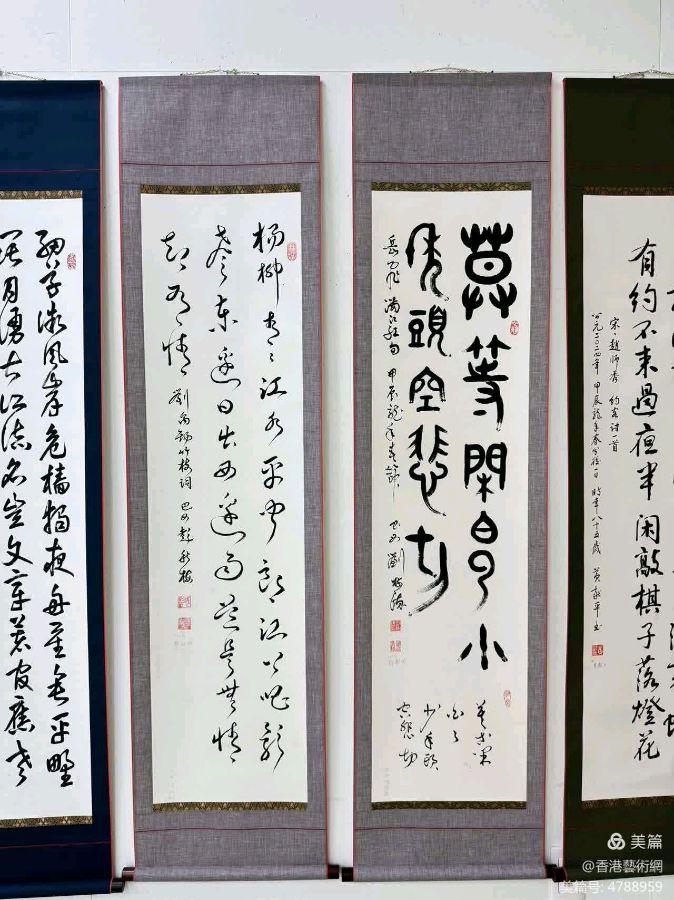 有约不来過夜半闲敲棋子落燈花
宋·趙师秀 约客诗一首
公元二〇二四年甲辰龍年春分後一日 時年八十五歲
莫等閒白了小
年頭空悲切
岳飛滿江紅句 甲辰龍年春節 巴西
莫等閒
白了
少年頭
空悲切
楊柳青〻江水平聞郎江上唱歌
聲東邊日出西邊雨道是無情
却有情 劉禹錫竹枝詞 巴西
細草微風岸危檣獨夜舟星垂平野
闊月湧大江流名豈文章著官應老
美篇
@香港藝術網
美篇号: 4788959